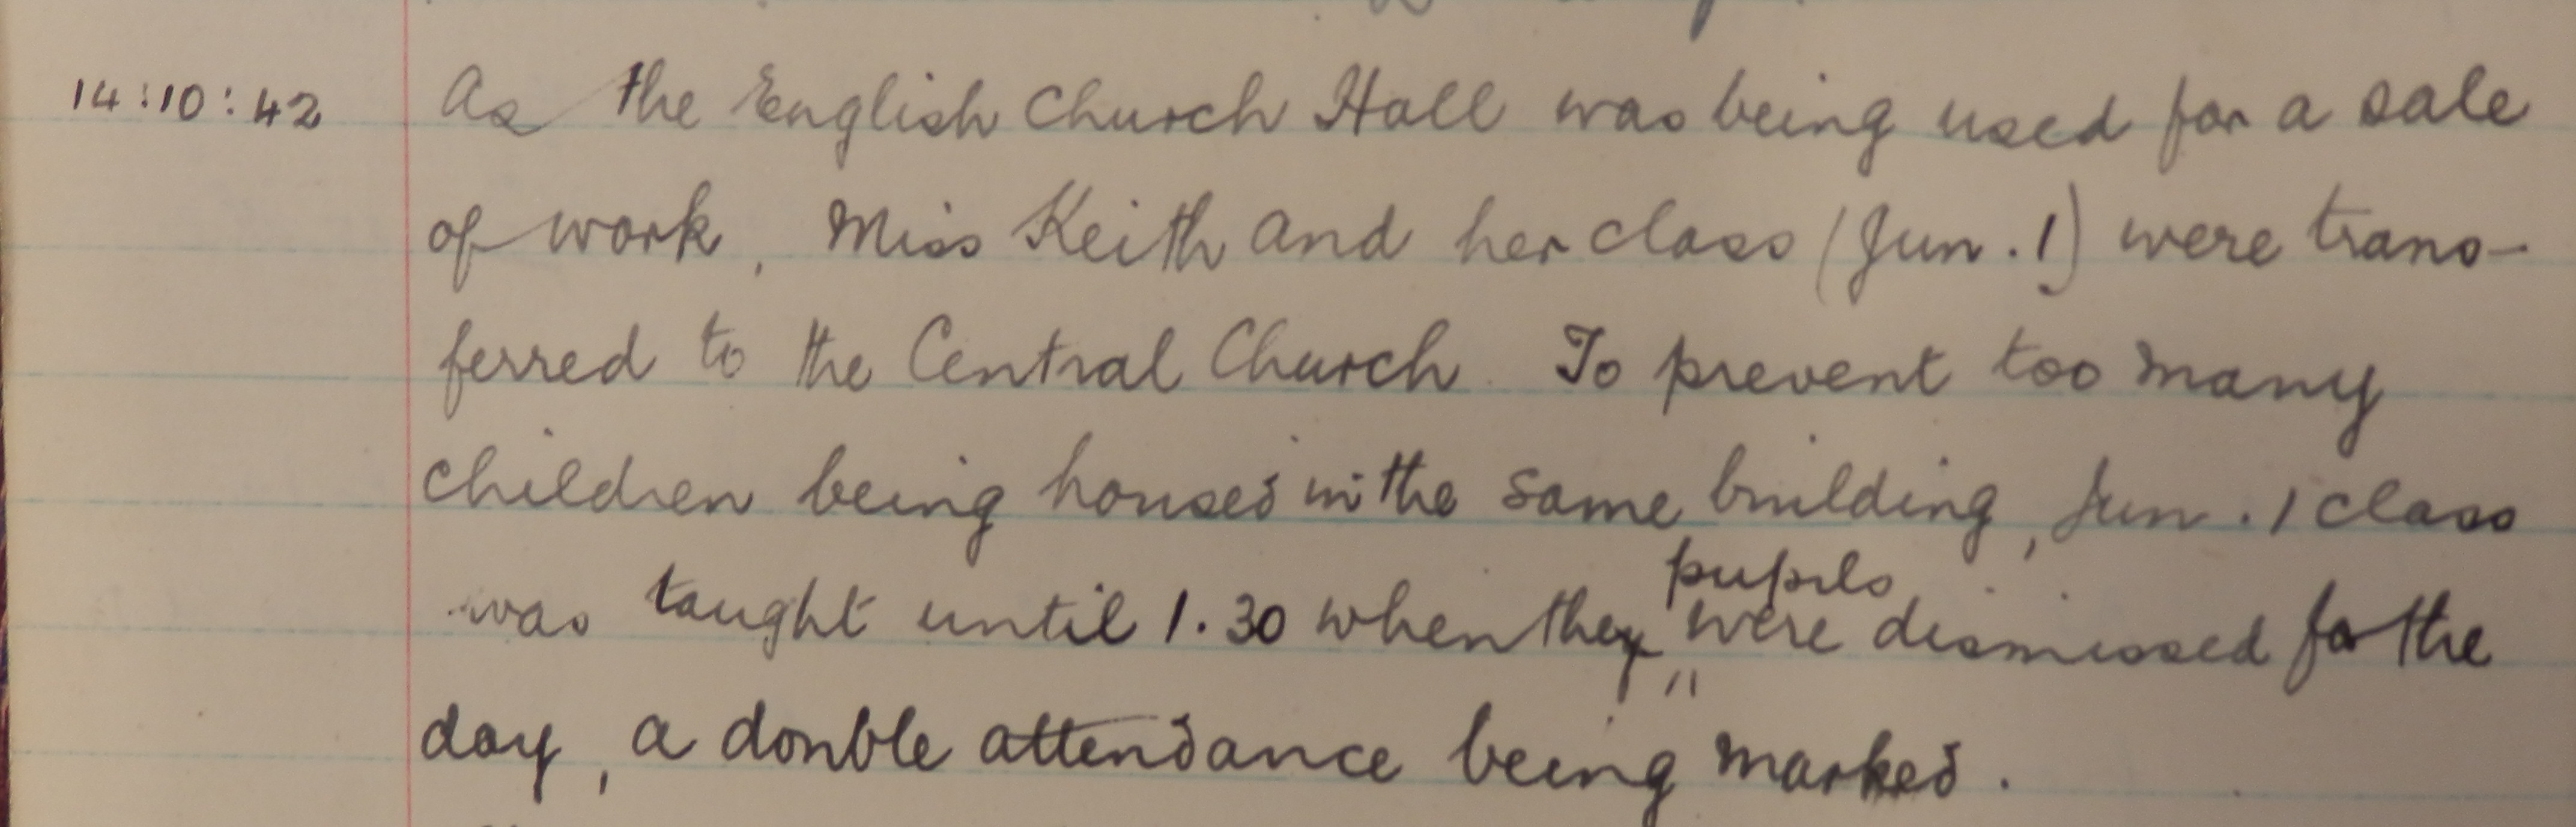 14:10:42 As the English Church Hall was being used for a sale
of work, Miss Keith and her class (Jun. 1) were trans-
ferred to the Central Church. To prevent too many
children being housed in the same building, Jun. 1 class
pupils
was taught until 1.30 when they were dismissed for the
day, a double attendance being marked.